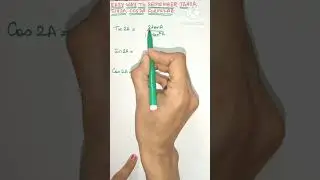 EASY WAY TO REMEMBER TAN2A,
SIN2A COS2A FORMULAE
Tan 2A = 2tanA
Sin2A =
Cos 2A =
Cos 2A =